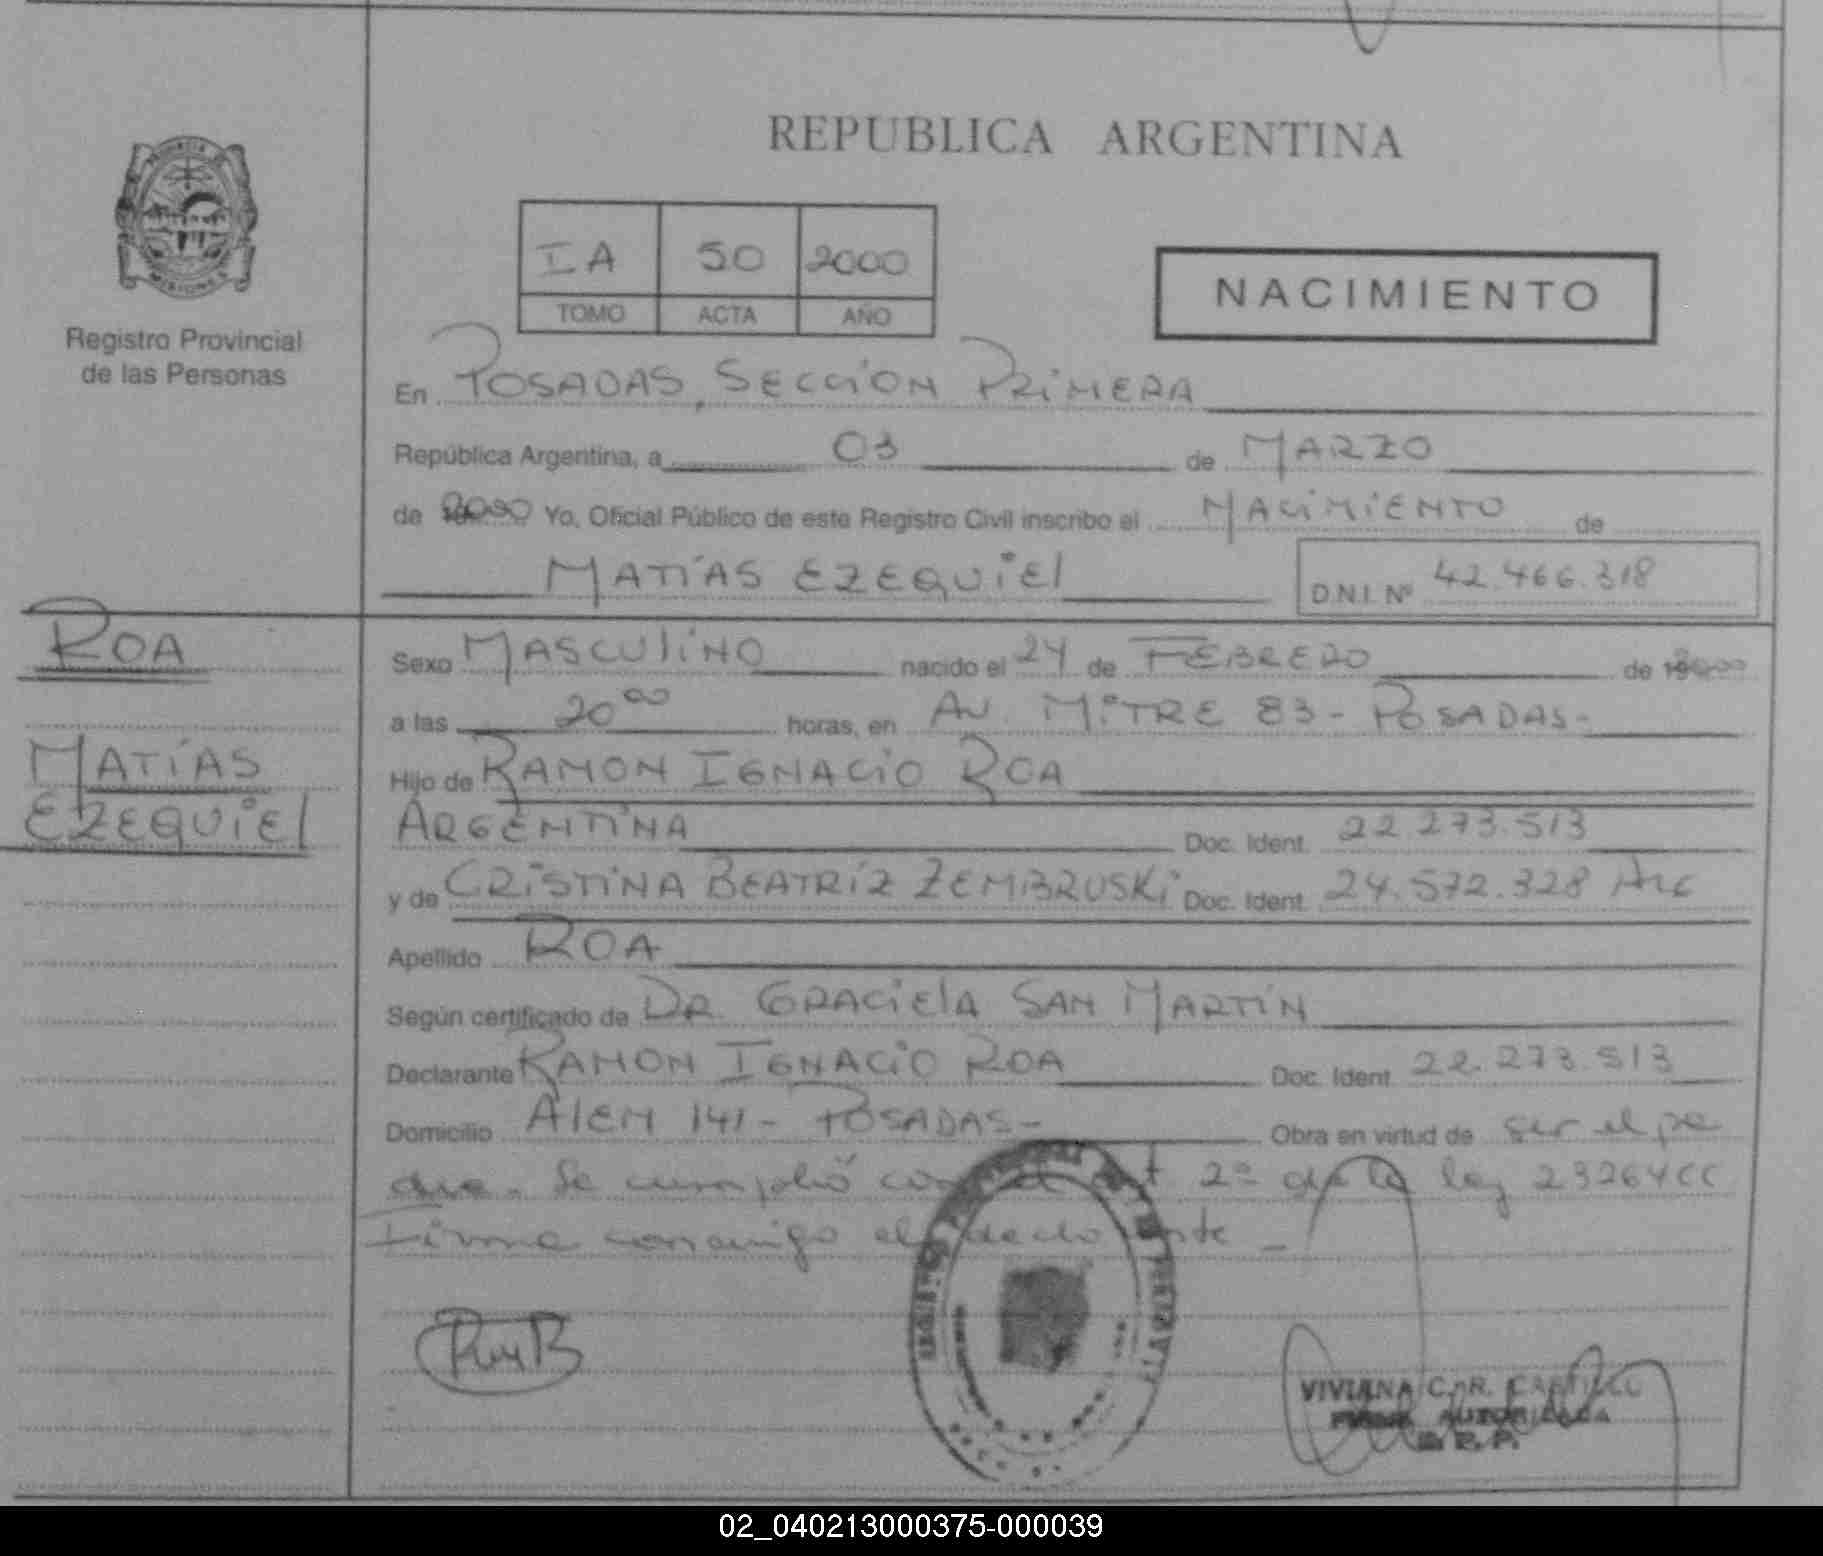 REPUBLICA ARGENTINA
IA 50 2000
TOMO ACTA AÑO
NACIMIENTO
Registro Provincial
de las Personas
En POSADAS, SECCIÓN PRIMERA
República Argentina, a 03 de MARZO
de 2000 Yo, Oficial Público de este Registro Civil inscribo el NACIMIENTO de
MATÍAS EZEQUIEL D.N.I. Nº 42.466.318
ROA
MATÍAS
EZEQUIEL
Sexo MASCULINO nacido el 24 de FEBRERO de 2000
a las 20 00 horas, en AV. MITRE 83 - POSADAS -
Hijo de RAMON IGNACIO ROA
ARGENTINA Doc. Ident. 22.273.513
y de CRISTINA BEATRÍZ ZEMBRUSKI Doc. Ident. 24.572.328 ARG
Apellido ROA
Según certificado de DR. GRACIELA SAN MARTÍN
Declarante RAMON IGNACIO ROA Doc. Ident. 22.273.513
Domicilio ALEM 141 - POSADAS - Obra en virtud de ser el pa
dre. Se cumplió con el art 2º de la ley 23264 CC
Firma conmigo el declarante -
VIVIANA C. R. CASTILLO
FIRMA AUTORIZADA
R. P.
02_040213000375-000039